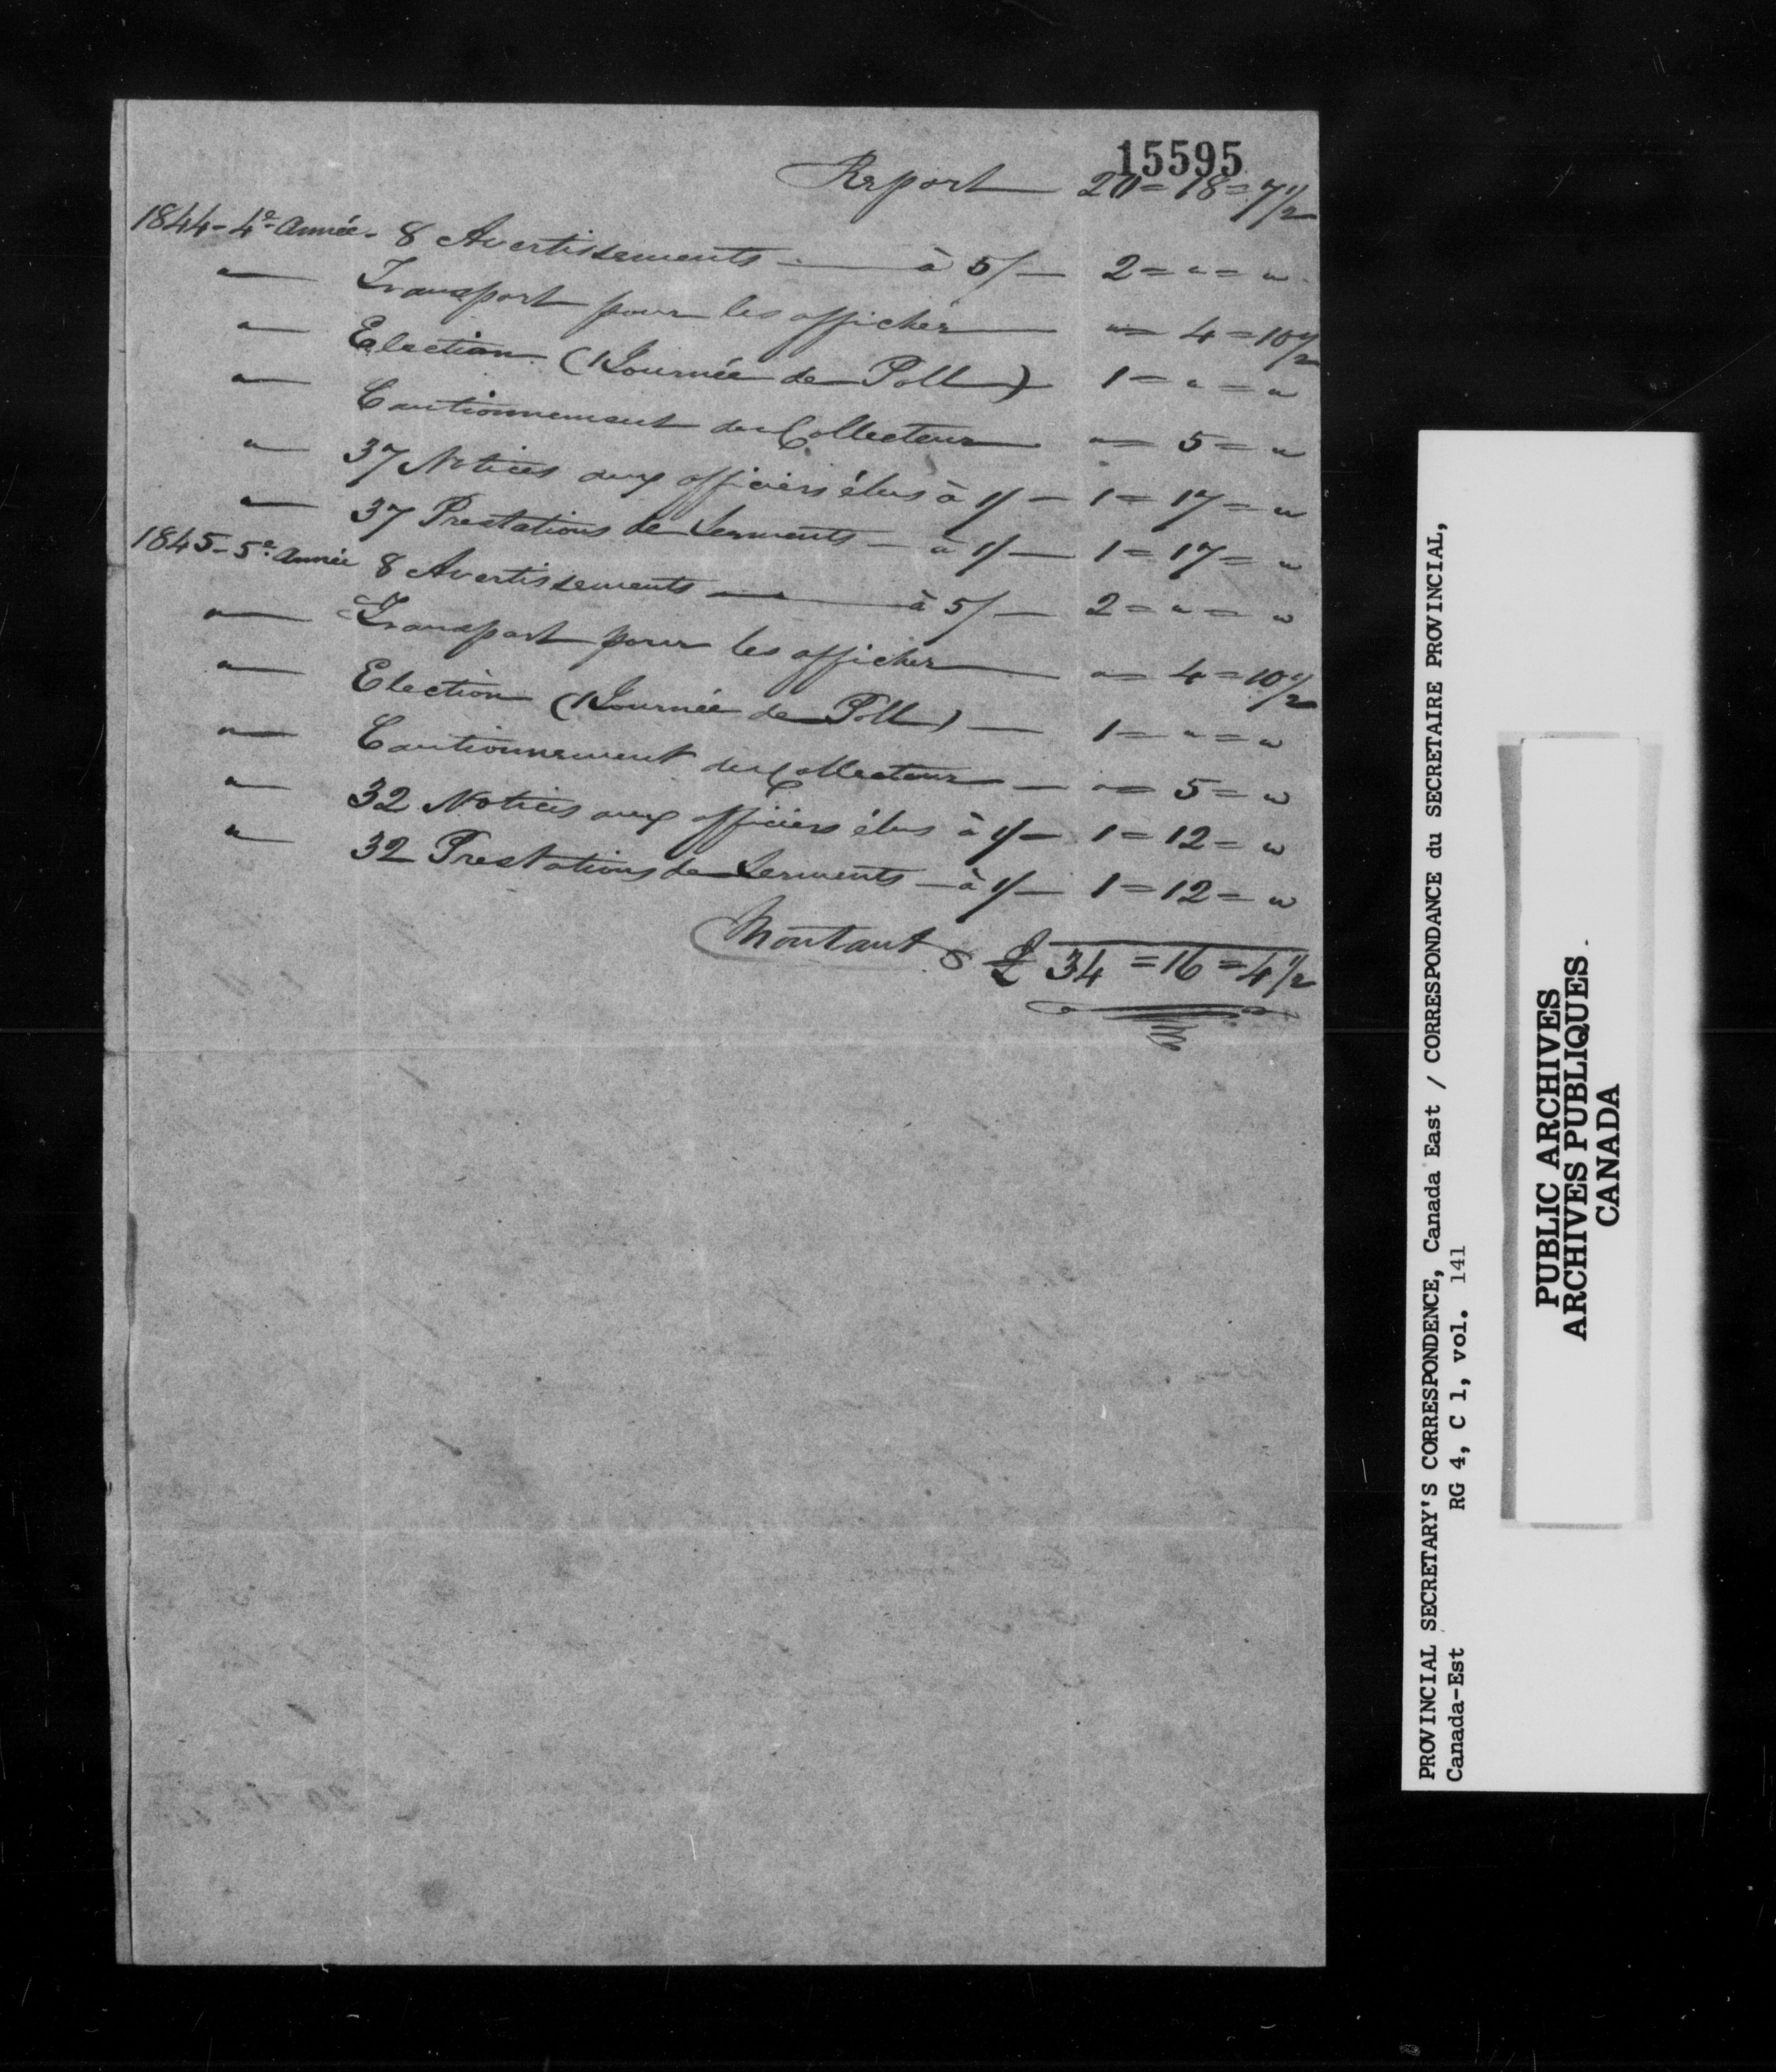 15595
Report 20 = 18 = 7 1/2
1844 - 4e année - 8 Avertissements à 5/- 2 = " = "
" Transport pour les afficher " = 4 = 10 1/2
" Election (1 Journée de Poll) 1 = " = "
" Cautionnement du Collecteur " = 5 = "
" 37 Notices aux officiers élus à 1/- 1 = 17 = "
" 37 Prestations de Serments - à 1/- 1 = 17 = "
1845 - 5e année 8 Avertissements à 5/- 2 = " = "
" Transport pour les afficher " = 4 = 10 1/2
" Election (1 Journée de Poll) - 1 = " = "
" Cautionnement du Collecteur - " = 5 = "
" 32 Notices aux officiers élus à 1/- 1 = 12 = "
" 32 Prestations de Serments - à 1/- 1 = 12 = "
Montant £ 34 = 16 = 4 1/2
PROVINCIAL SECRETARY'S CORRESPONDENCE, Canada East / CORRESPONDANCE du SECRETAIRE PROVINCIAL,
Canada-Est RG 4, C 1, vol. 141
PUBLIC ARCHIVES
ARCHIVES PUBLIQUES
CANADA